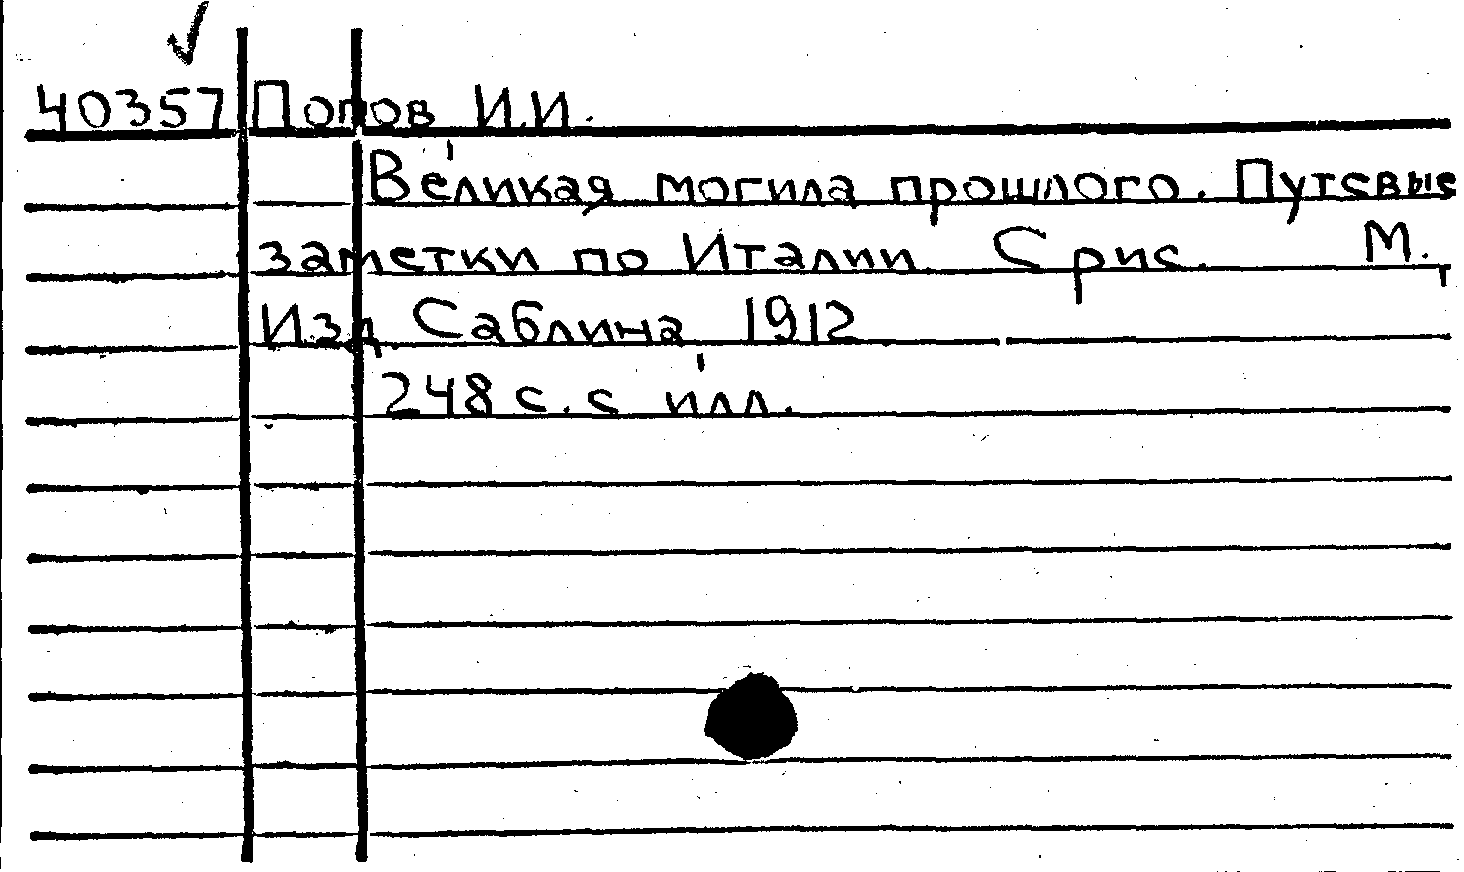 40357 Попов И.И.
Великая могила прошлого. Путевые
заметки по Италии. С рис. М.,
Изд. Саблина 1912
248 с. с илл.